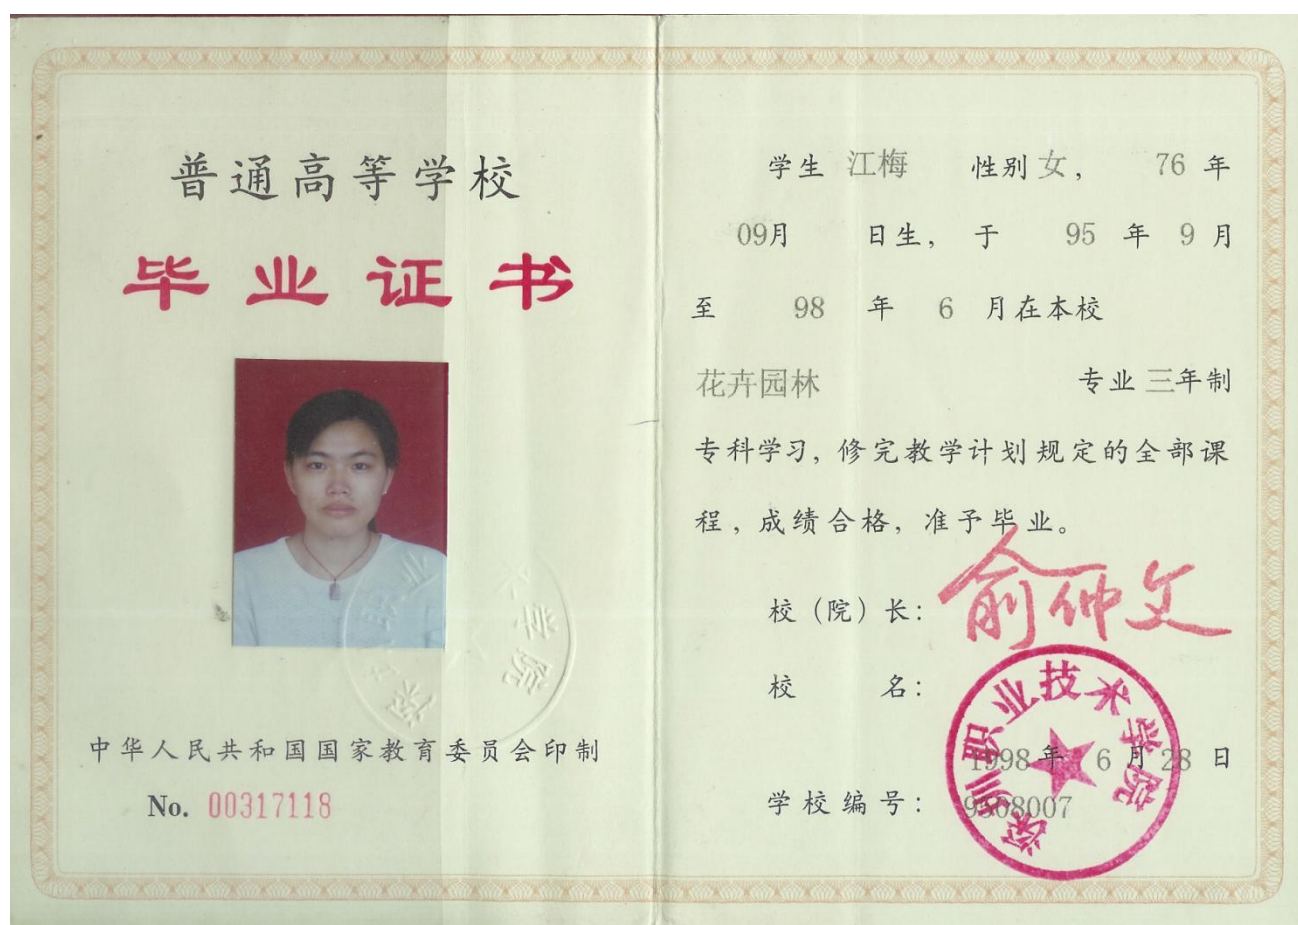 普通高等学校
毕业证书
中华人民共和国国家教育委员会印制
No. 00317118
学生 江梅 性别 女， 76 年
09月 日生， 于 95 年 9 月
至 98 年 6 月在本校
花卉园林 专业 三年制
专科学习，修完教学计划规定的全部课
程，成绩合格，准予毕业。
校（院）长： 俞仲文
校 名：
深圳职业技术学院
1998 年 6 月 28 日
学校编号： 9508007